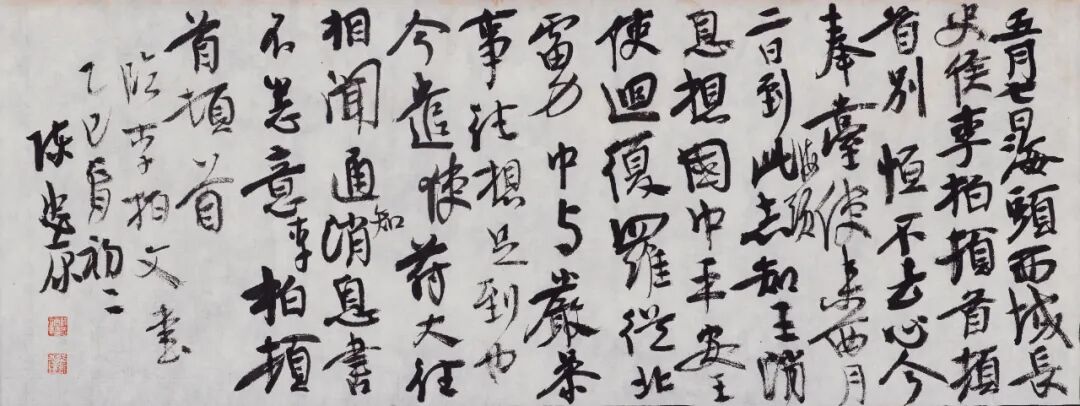 五月七日海頭西域長
史侯李柏頓首頓
首別恒不去心今
奉臺使来西月
二日到此海頭未知王消
息想國中平安王
使迴復羅從北
虜中与嚴参
事往想是到也
今遣使苻大往
相聞通知消息書
不悉意李柏頓
首頓首
臨李柏文書
乙巳月初二
陳忠康